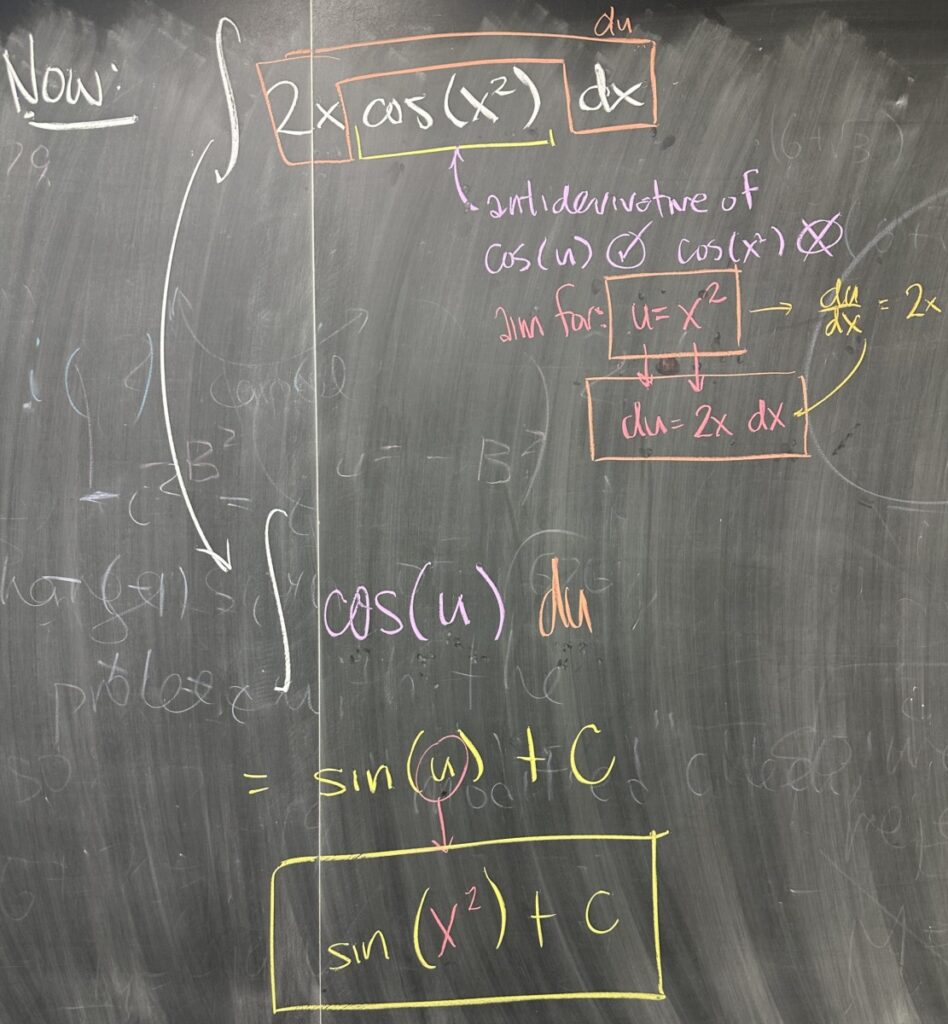 du
Now: ∫ 2x cos(x²) dx
antiderivative of
cos(u) ✓ cos(x²) X
aim for: u = x² → du/dx = 2x
du = 2x dx
∫ cos(u) du
= sin(u) + C
sin(x²) + C